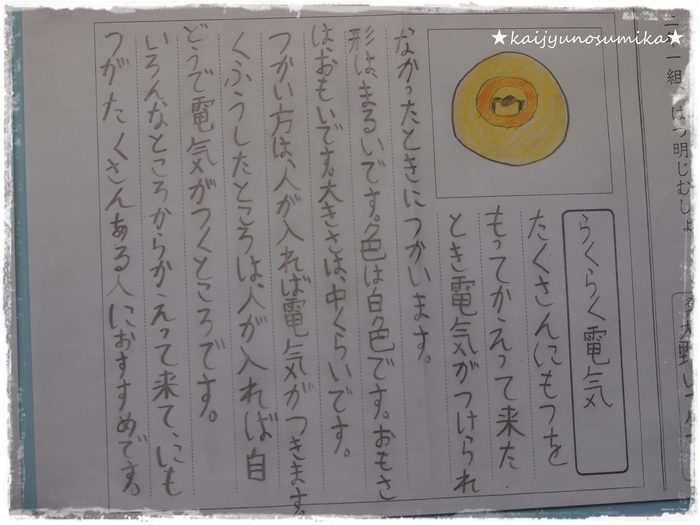 ★kaijyunosumika★
組、はつ明じむしょ
らくらく電気
たくさんにもつを
もってかえって来た
とき電気がつけられ
なかったときにつかいます。
形はまるいです。色は白色です。おもさ
は、おもいです。大きさは、中くらいです。
つかい方は、人が入れば電気がつきます。
くふうしたところは、人が入れば自
どうで電気がつくところです。
いろんなところからかえって来て、にも
つがたくさんある人におすすめです。